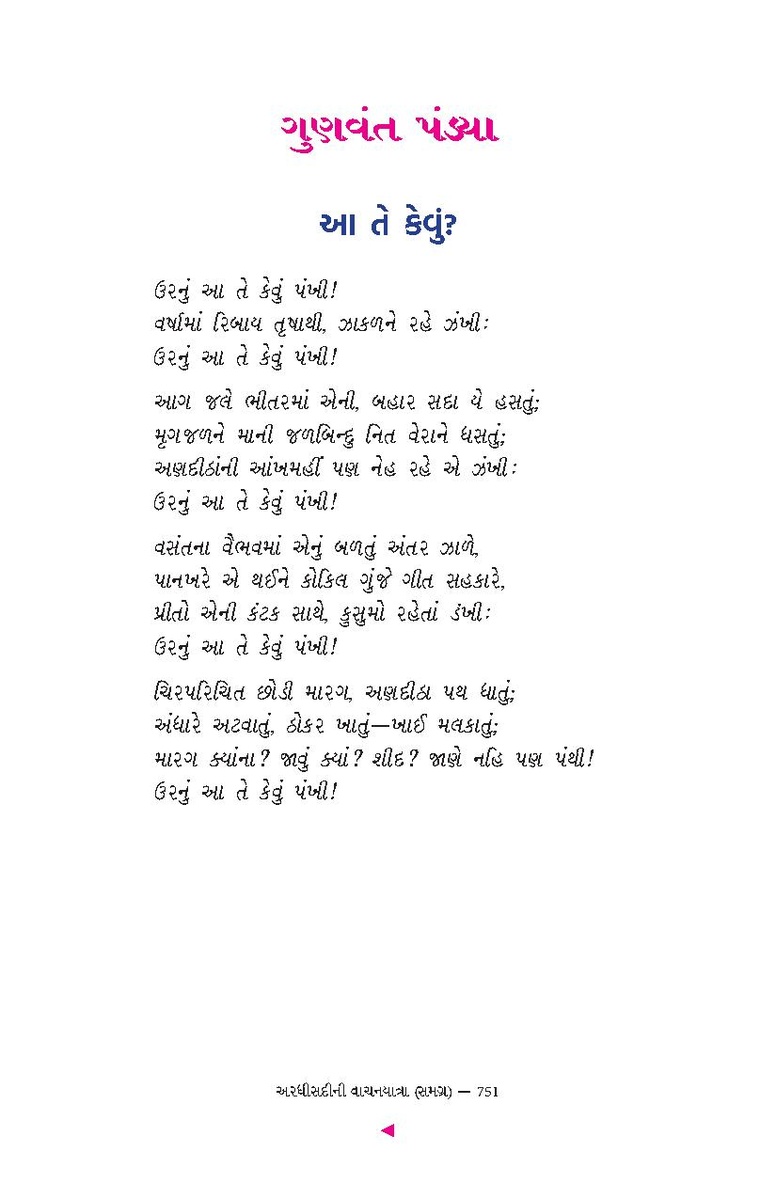 ગુણવંત પંડ્યા
આ તે કેવું?
ઉરનું આ તે કેવું પંખી!
વર્ષામાં રિબાય તૃષાથી, ઝાકળને રહે ઝંખીઃ
ઉરનું આ તે કેવું પંખી!
આગ જલે ભીતરમાં એની, બહાર સદા યે હસતું;
મૃગજળને માની જળબિન્દુ નિત વેરાને ધસતું;
અણદીઠાંની આંખમહીં પણ નેહ રહે એ ઝંખીઃ
ઉરનું આ તે કેવું પંખી!
વસંતના વૈભવમાં એનું બળતું અંતર ઝાળે,
પાનખરે એ થઈને કોકિલ ગુંજે ગીત સહકારે,
પ્રીતો એની કંટક સાથે, કુસુમો રહેતાં ડંખીઃ
ઉરનું આ તે કેવું પંખી!
ચિરપરિચિત છોડી મારગ, અણદીઠા પથ ધાતું;
અંધારે અટવાતું, ઠોકર ખાતું—ખાઈ મલકાતું;
મારગ ક્યાંના? જાવું ક્યાં? શીદ? જાણે નહિ પણ પંથી!
ઉરનું આ તે કેવું પંખી!
અરધીસદીની વાચનયાત્રા (સમગ્ર) — 751